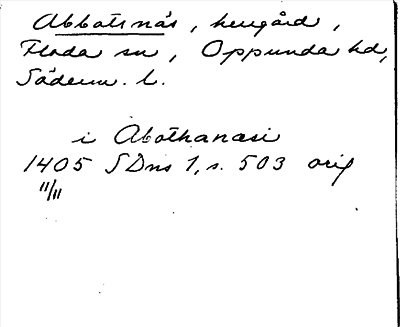 Abbotsnäs, herrgård,
Floda sn, Oppunda hd,
Söderm. l.
i Abothanæsi
1405 SDns 1, s. 503 orig
11/11